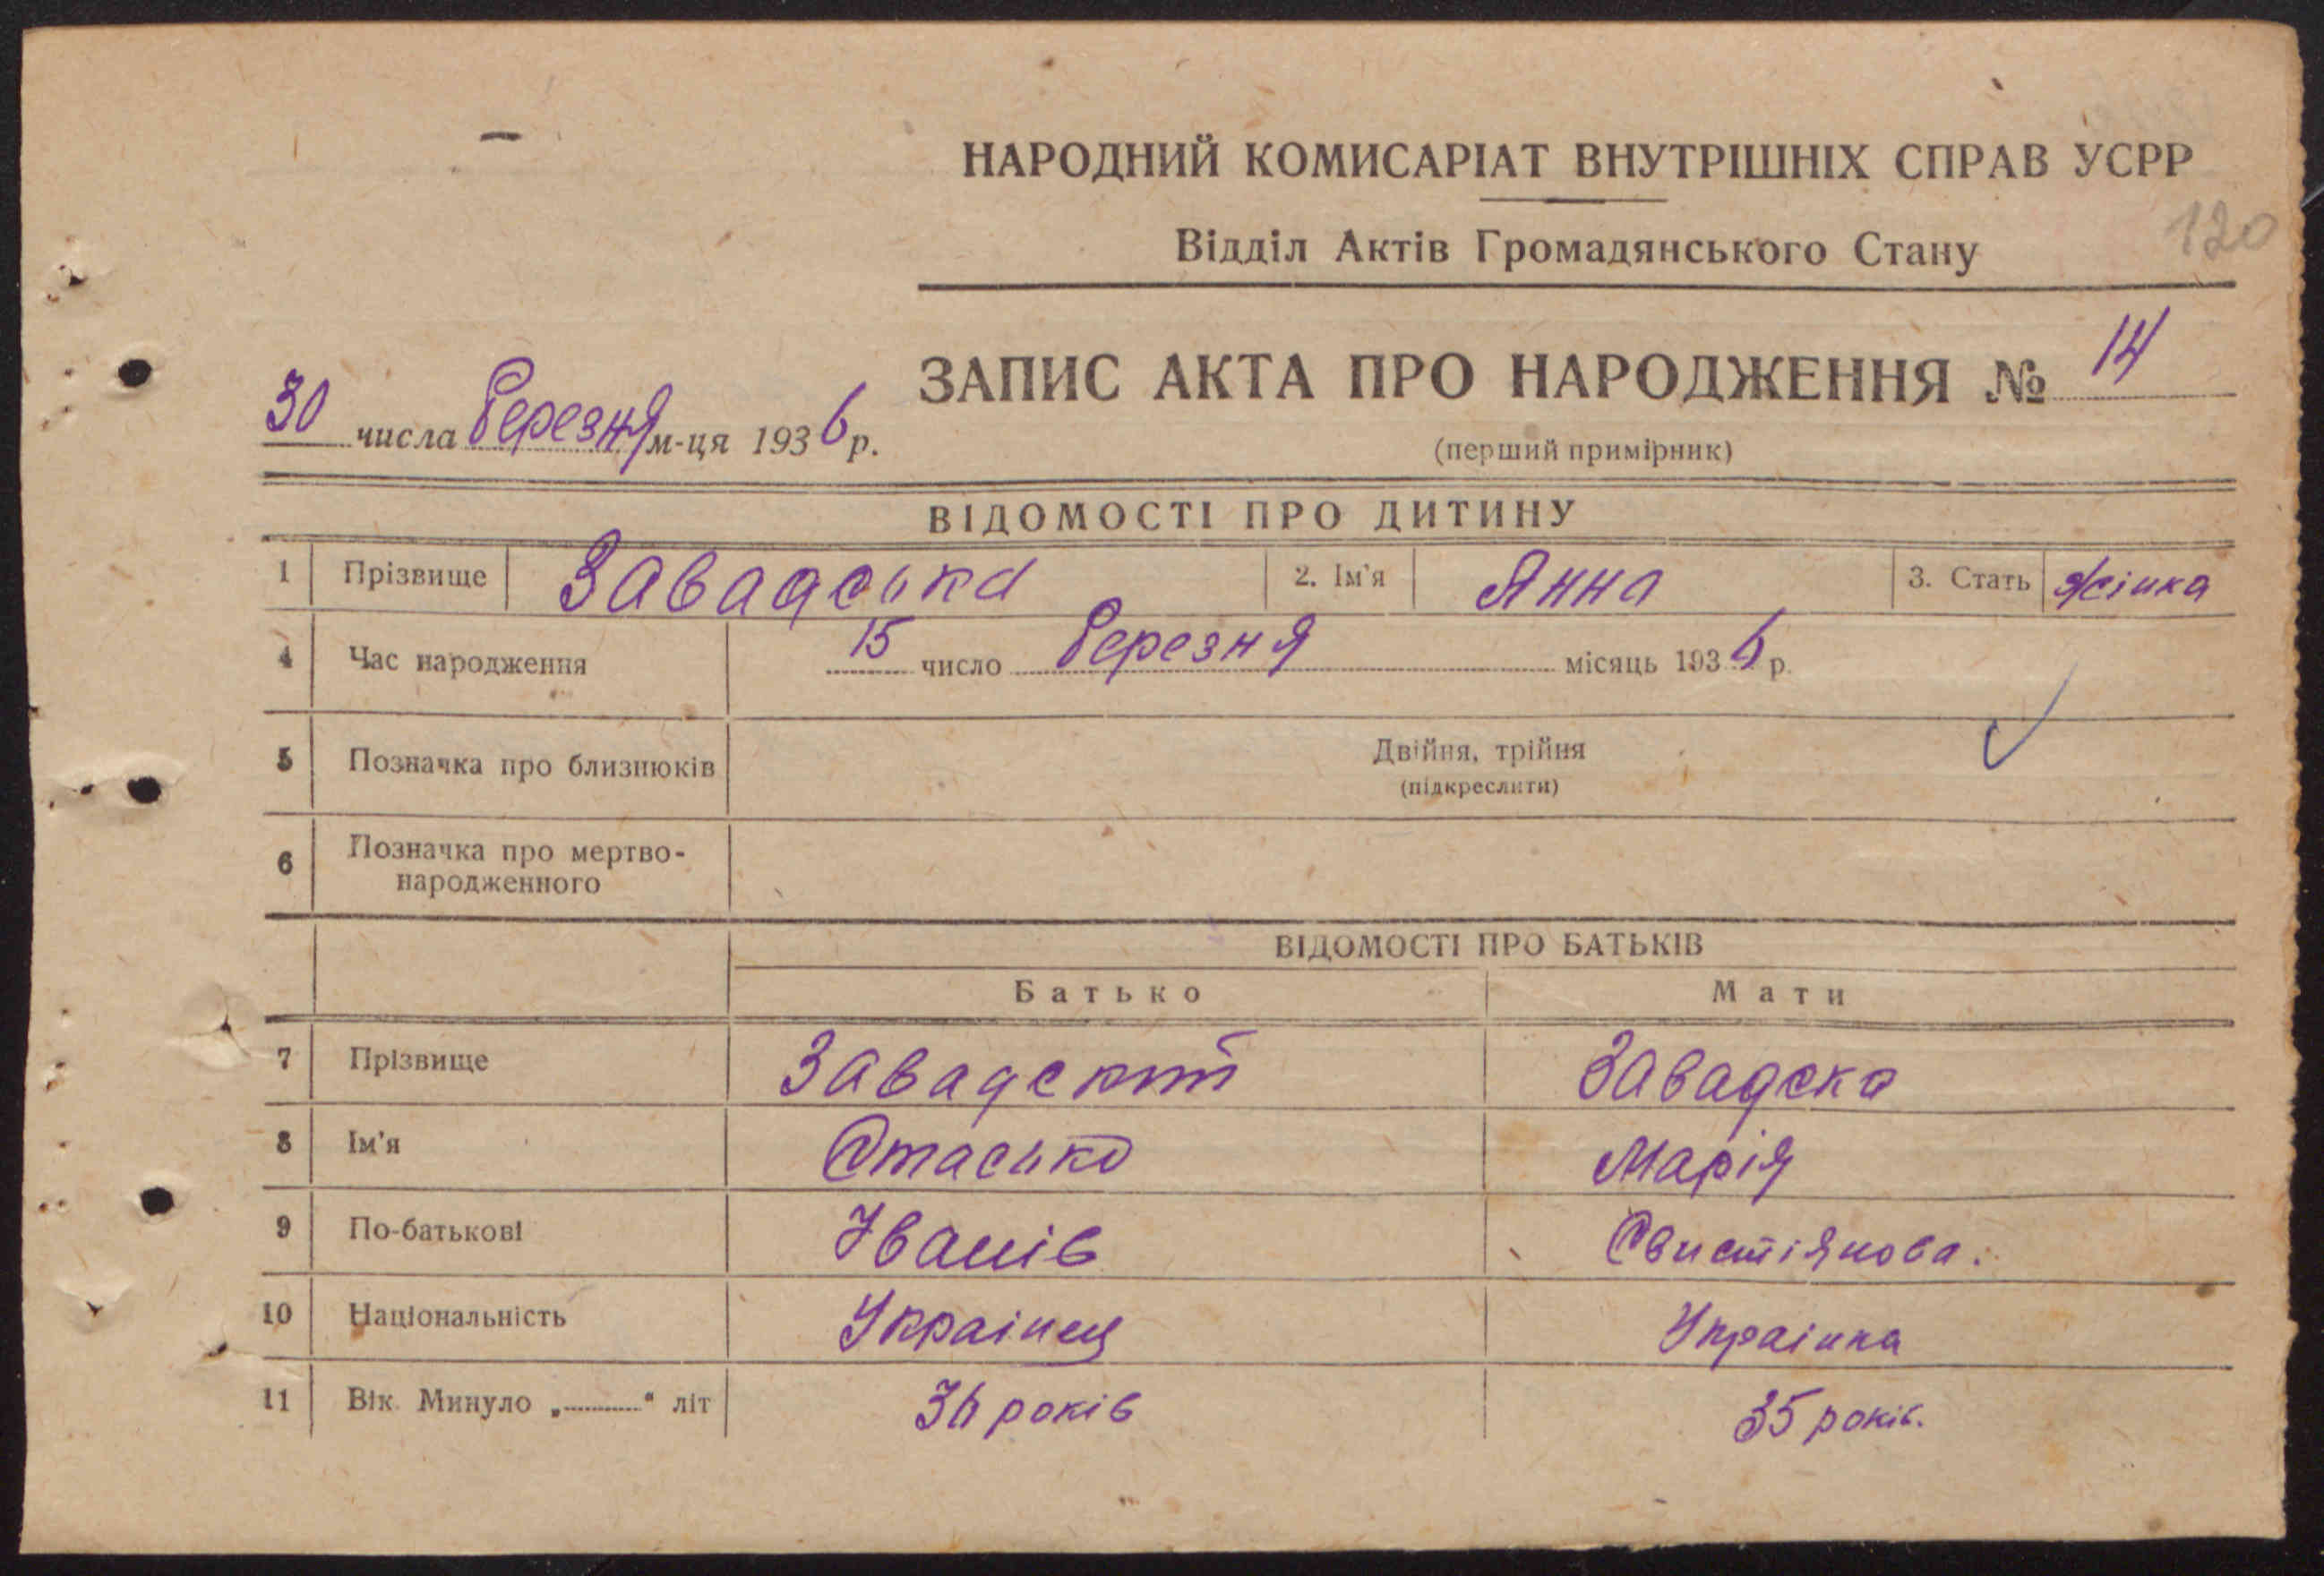 НАРОДНИЙ КОМИСАРІАТ ВНУТРІШНІХ СПРАВ УСРР
Відділ Актів Громадянського Стану
120
ЗАПИС АКТА ПРО НАРОДЖЕННЯ № 14
30 числа Березня м-ця 1936 р.
(перший примірник)
ВІДОМОСТІ ПРО ДИТИНУ
1 Прізвище Завадська 2. Ім'я Янна 3. Стать жінка
4 Час народження 15 число Березня місяць 1936 р.
5 Позначка про близнюків Двійня, трійня
(підкреслити)
6 Позначка про мертво-
народженного
ВІДОМОСТІ ПРО БАТЬКІВ
Батько Мати
7 Прізвище Завадський Завадска
8 Ім'я Стасько Марія
9 По-батькові Іванів Свистіянова.
10 Національність Українец Українка
11 Вік. Минуло „ “ літ 36 років 35 років.